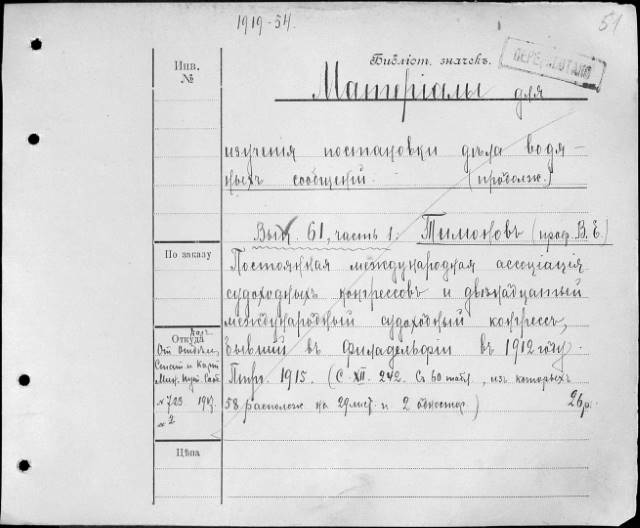 1919-54.
51
Инв.
№
Библіот. значекъ.
ПЕРЕРАБОТАНО
Матеріалы для
изученія постановки дѣла водя-
ныхъ сообщеній. (продолж.)
Вып. 61, часть 1. Тимоновъ (проф. В. Е.)
По заказу
Постоянная международная ассоціація
судоходныхъ конгрессовъ и двѣнадцатый
международный судоходный конгрессъ,
бывшій въ Филадельфіи въ 1912 году.
Птгр. 1915. (С. XII. 242. Съ 60 табл., из которыхъ
58 располож на 29 лист. и 2 одностор.) 26 р.
Откуда
От отдѣл.
Стат и Карт
Мин. Пут. Сообщ
№ 723 19
№ 2
Цѣна